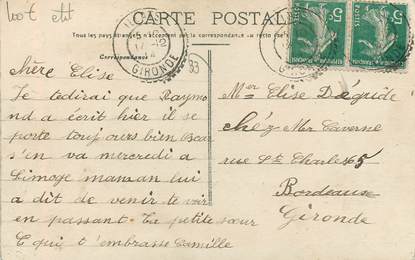 CARTE POSTALE
Tous les pays étrangers n'acceptent pas la correspondance au recto
Correspondance
GIRONDE
5c
5c
Chère Elise
Je tedirai que Raymo
nd a écrit hier il se
porte toujours bien Oscar
s'en va mercredi a
Limoge maman lui
a dit de venir te voir
en passant. Ta petite sœur
qui t'embrasse Camille
83
Mer Elise
chéz Mer Taverne
rue Ste Charle 65
Bordeaux
Gironde